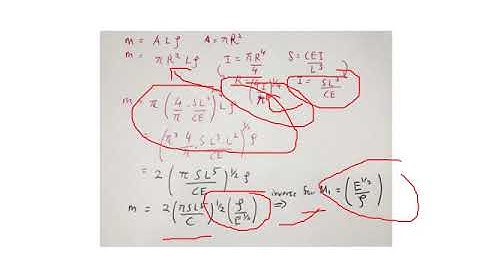 m = A L ρ   A = πR²
m = πR² L ρ   I = πR⁴/4   S = CEI/L³
R = (4I/π)^1/4   I = SL³/CE
m = π (4/π · SL³/CE)^1/2 L ρ
= (π² 4/π · SL³·L²/CE)^1/2 ρ
= 2 (π SL⁵/CE)^1/2 ρ
m = 2 (πSL⁵/C)^1/2 (ρ/E^1/2) ⇒ inverse for M₁ = (E^1/2/ρ)